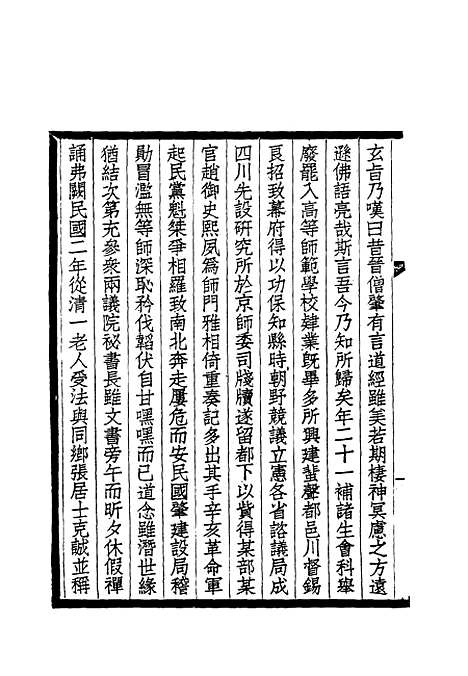 玄旨乃嘆曰昔晉僧肇有言道經雖美若期棲神冥慮之方遠
遜佛語亮哉斯言吾今乃知所歸矣年二十一補諸生會科舉
廢罷入高等師範學校肄業旣畢多所興建蜚聲都邑川督錫
良招致幕府得以功保知縣時朝野競議立憲各省諮議局成
四川先設研究所於京師委司牋牘遂留都下以貲得某部某
官趙御史熙夙爲師門雅相倚重奏記多出其手辛亥革命軍
起民黨魁桀爭相羅致南北奔走屢危而安民國肇建設局稽
勛冒濫無等師深恥矜伐韜伏自甘嘿嘿而已道念雖潛世緣
猶結次第充參衆兩議院祕書長雖文書旁午而昕夕休假禪
誦弗闕民國二年從清一老人受法與同鄉張居士克誠並稱